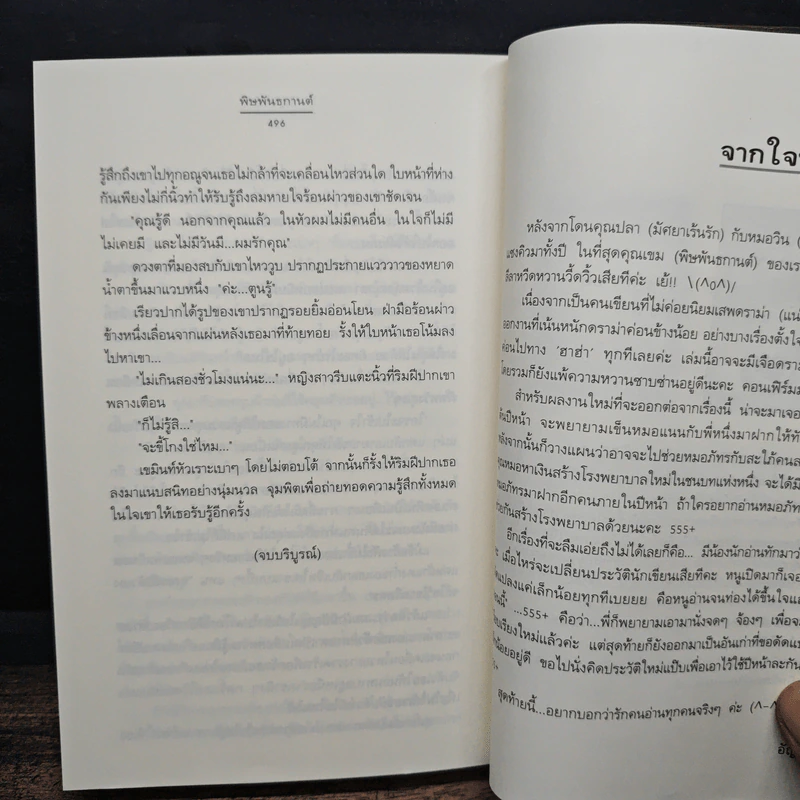 พิษพันธกานต์
496
รู้สึกถึงเขาไปทุกอณูจนเธอไม่กล้าที่จะเคลื่อนไหวส่วนใด ใบหน้าที่ห่าง
กันเพียงไม่กี่นิ้วทำให้รับรู้ถึงลมหายใจร้อนผ่าวของเขาชัดเจน
"คุณรู้ดี นอกจากคุณแล้ว ในหัวผมไม่มีคนอื่น ในใจก็ไม่มี
ไม่เคยมี และไม่มีวันมี...ผมรักคุณ"
ดวงตาที่มองสบกับเขาไหววูบ ปรากฏประกายแวววาวของหยาด
น้ำตาขึ้นมาแวบหนึ่ง "ค่ะ...ตูนรู้"
เรียวปากได้รูปของเขาปรากฏรอยยิ้มอ่อนโยน ฝ่ามือร้อนผ่าว
ข้างหนึ่งเลื่อนจากแผ่นหลังเธอมาที่ท้ายทอย รั้งให้ใบหน้าเธอโน้มลง
ไปหาเขา...
"ไม่เกินสองชั่วโมงแน่นะ..." หญิงสาวรีบแตะนิ้วที่ริมฝีปากเขา
พลางเตือน
"ก็ไม่รู้สิ..."
"จะขี้โกงใช่ไหม..."
เขมินท์หัวเราะเบาๆ โดยไม่ตอบโต้ จากนั้นก็รั้งให้ริมฝีปากเธอ
ลงมาแนบสนิทอย่างนุ่มนวล จุมพิตเพื่อถ่ายทอดความรู้สึกทั้งหมด
ในใจเขาให้เธอรับรู้อีกครั้ง
(จบบริบูรณ์)
จากใจ
หลังจากโดนคุณปลา (มัศยาเร้นรัก) กับหมอวิน (
แซงคิวมาทั้งปี ในที่สุดคุณเขม (พิษพันธกานต์) ของเรา
ได้ลาหวีดหวานวี้ดวิ้วเสียทีค่ะ เย้!! \(^o^)/
เนื่องจากเป็นคนเขียนที่ไม่ค่อยนิยมเสพดราม่า (แน่
ออกงานที่เน้นหนักดราม่าค่อนข้างน้อย อย่างบางเรื่องตั้งใจ
ค่อนไปทาง 'ฮาฮ่า' ทุกทีเลยค่ะ เล่มนี้อาจจะมีเจือดราม
โดยรวมก็ยังแพ้ความหวานซาบซ่านอยู่ดีนะคะ คอนเฟิร์ม
สำหรับผลงานใหม่ที่จะออกต่อจากเรื่องนี้ น่าจะมาเจอ
ต้นปีหน้า จะพยายามเข็นหมอแนนกับพี่หนึ่งมาฝากให้ทั
หลังจากนั้นก็วางแผนว่าอาจจะไปช่วยหมอภัทรกับสะใภ้คนส
คุณหมอหาเงินสร้างโรงพยาบาลใหม่ในชนบทแห่งหนึ่ง จะได้มี
หมอภัทรมาฝากอีกคนภายในปีหน้า ถ้าใครอยากอ่านหมอภัท
ช่วยกันสร้างโรงพยาบาลด้วยนะคะ 555+
อีกเรื่องที่จะลืมเอ่ยถึงไม่ได้เลยก็คือ... มีน้องนักอ่านทักมาว่า
เมื่อไหร่จะเปลี่ยนประวัตินักเขียนเสียทีคะ หนูเปิดมาก็เจอ
แปลงแค่เล็กน้อยทุกทีเบยยย คือหนูอ่านจนท่องได้ขึ้นใจแ
...555+ คือว่า...พี่ก็พยายามเอามานั่งจดๆ จ้องๆ เพื่อจะ
เรียงใหม่แล้วค่ะ แต่สุดท้ายก็ยังออกมาเป็นอันเก่าที่ขอดัดแ
น้อยอยู่ดี ขอไปนั่งคิดประวัติใหม่แป๊บเพื่อเอาไว้ใช้ปีหน้าละกัน
สุดท้ายนี้...อยากบอกว่ารักคนอ่านทุกคนจริงๆ ค่ะ (^-^
อัญ